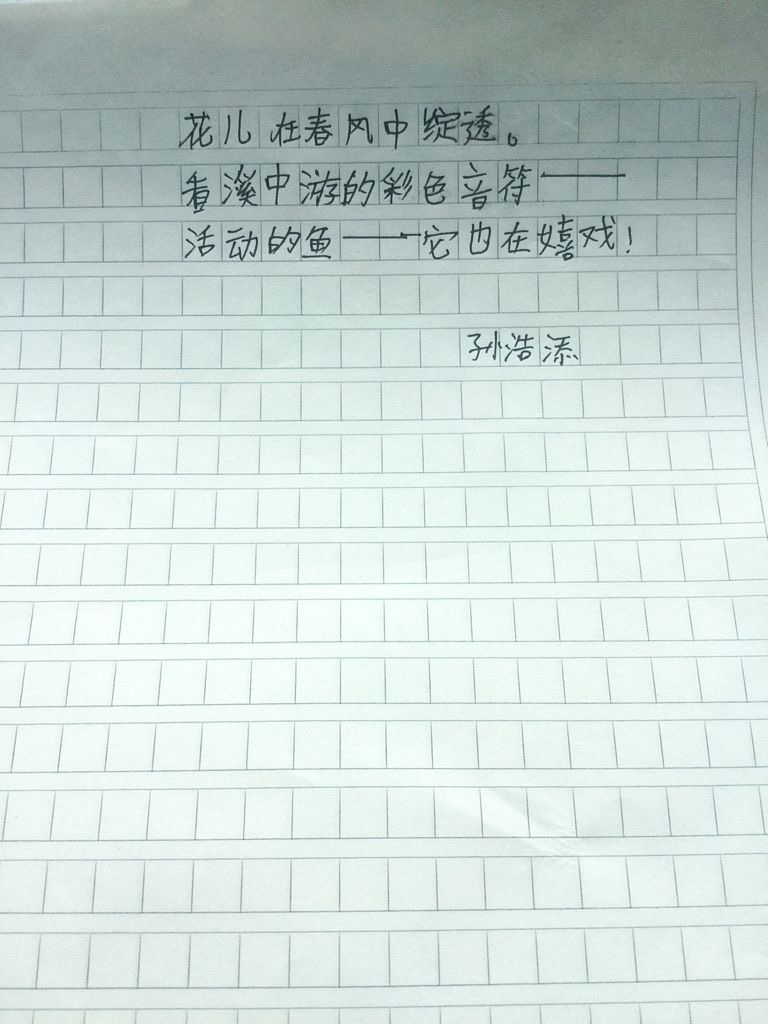 花儿在春风中绽透。
看溪中游的彩色音符——
活动的鱼——它也在嬉戏！
孙浩添